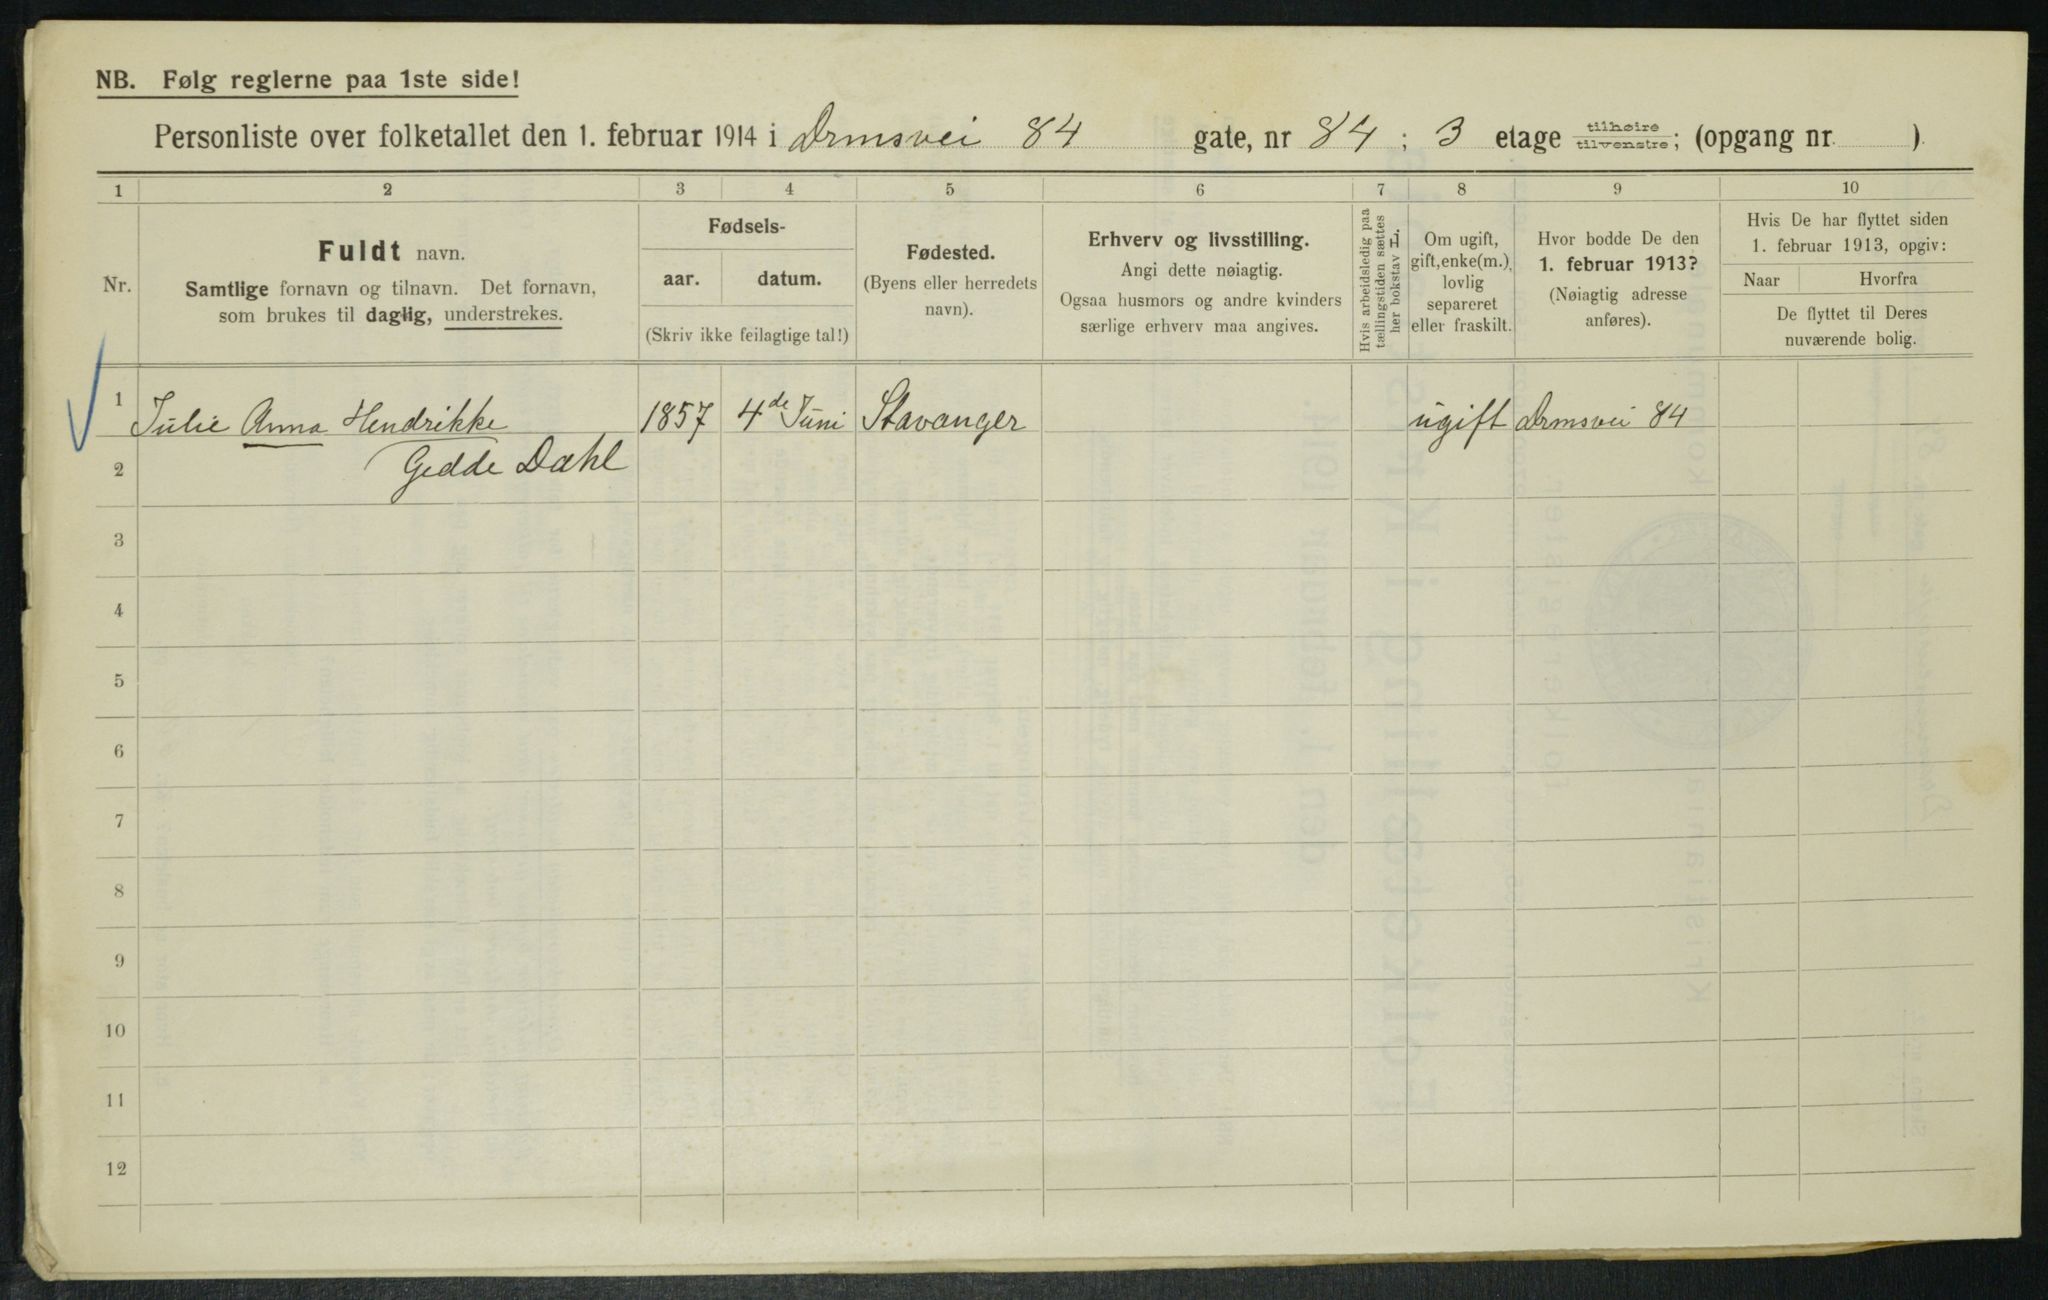 NB. Følg reglerne paa 1ste side!
Personliste over folketallet den 1. februar 1914 i Drmsvei 84 gate, nr 84 ; 3 etage tilhøire tilvenstre; (opgang nr. )
1 2 3 4 5 6 7 8 9 10
Nr.
Fuldt navn.
Samtlige fornavn og tilnavn. Det fornavn,
som brukes til daglig, understrekes.
Fødsels-
aar. datum.
(Skriv ikke feilagtige tal!)
Fødested.
(Byens eller herredets
navn).
Erhverv og livsstilling.
Angi dette nøiagtig.
Ogsaa husmors og andre kvinders
særlige erhverv maa angives.
Hvis arbeidsledig paa
tællingstiden sættes
her bokstav L.
Om ugift,
gift, enke(m.),
lovlig
separeret
eller fraskilt.
Hvor bodde De den
1. februar 1913?
(Nøiagtig adresse
anføres).
Hvis De har flyttet siden
1. februar 1913, opgiv:
Naar Hvorfra
De flyttet til Deres
nuværende bolig.
1 Julie Anna Hendrikke 1857 4de Juni Stavanger ugift Drmsvei 84
2 Gedde Dahl
3
4
5
6
7
8
9
10
11
12